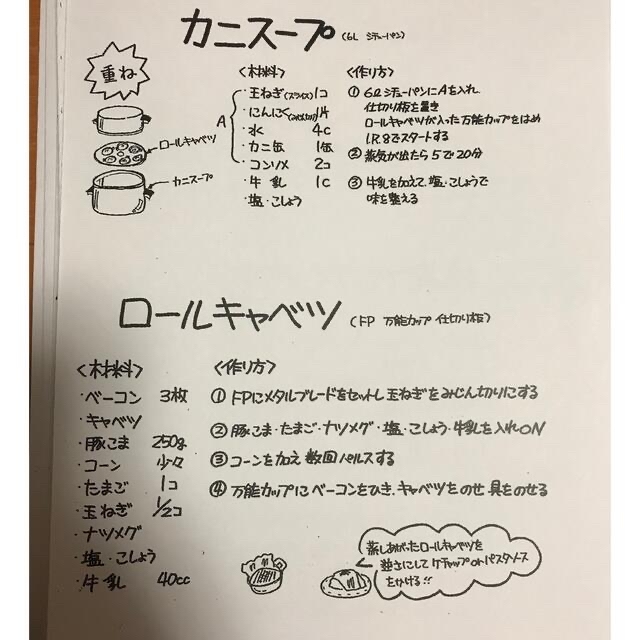 カニスープ (6L シチューパン)
重ね
ロールキャベツ
カニスープ
<材料>
A
・玉ねぎ(スライス) 1コ
・にんにく(みじん切り) 1片
・水 4c
・カニ缶 1缶
・コンソメ 2コ
・牛乳 1c
・塩・こしょう
<作り方>
① 6ℓシチューパンにAを入れ
仕切り板を置き
ロールキャベツが入った万能カップをはめ
I.R.8でスタートする
② 蒸気が出たら5で20分
③ 牛乳を加えて、塩・こしょうで
味を整える
ロールキャベツ (FP 万能カップ 仕切り板)
<材料>
・ベーコン 3枚
・キャベツ
・豚こま 250g
・コーン 少々
・たまご 1コ
・玉ねぎ 1/2コ
・ナツメグ
・塩・こしょう
・牛乳 40cc
<作り方>
① FPにメタルブレードをセットし玉ねぎをみじん切りにする
② 豚こま・たまご・ナツメグ・塩・こしょう・牛乳を入れON
③ コーンを加え数回パルスする
④ 万能カップにベーコンをひき、キャベツをのせ具をのせる
蒸しあがったロールキャベツを
逆さにしてケチャップorパスタソース
をかける!!